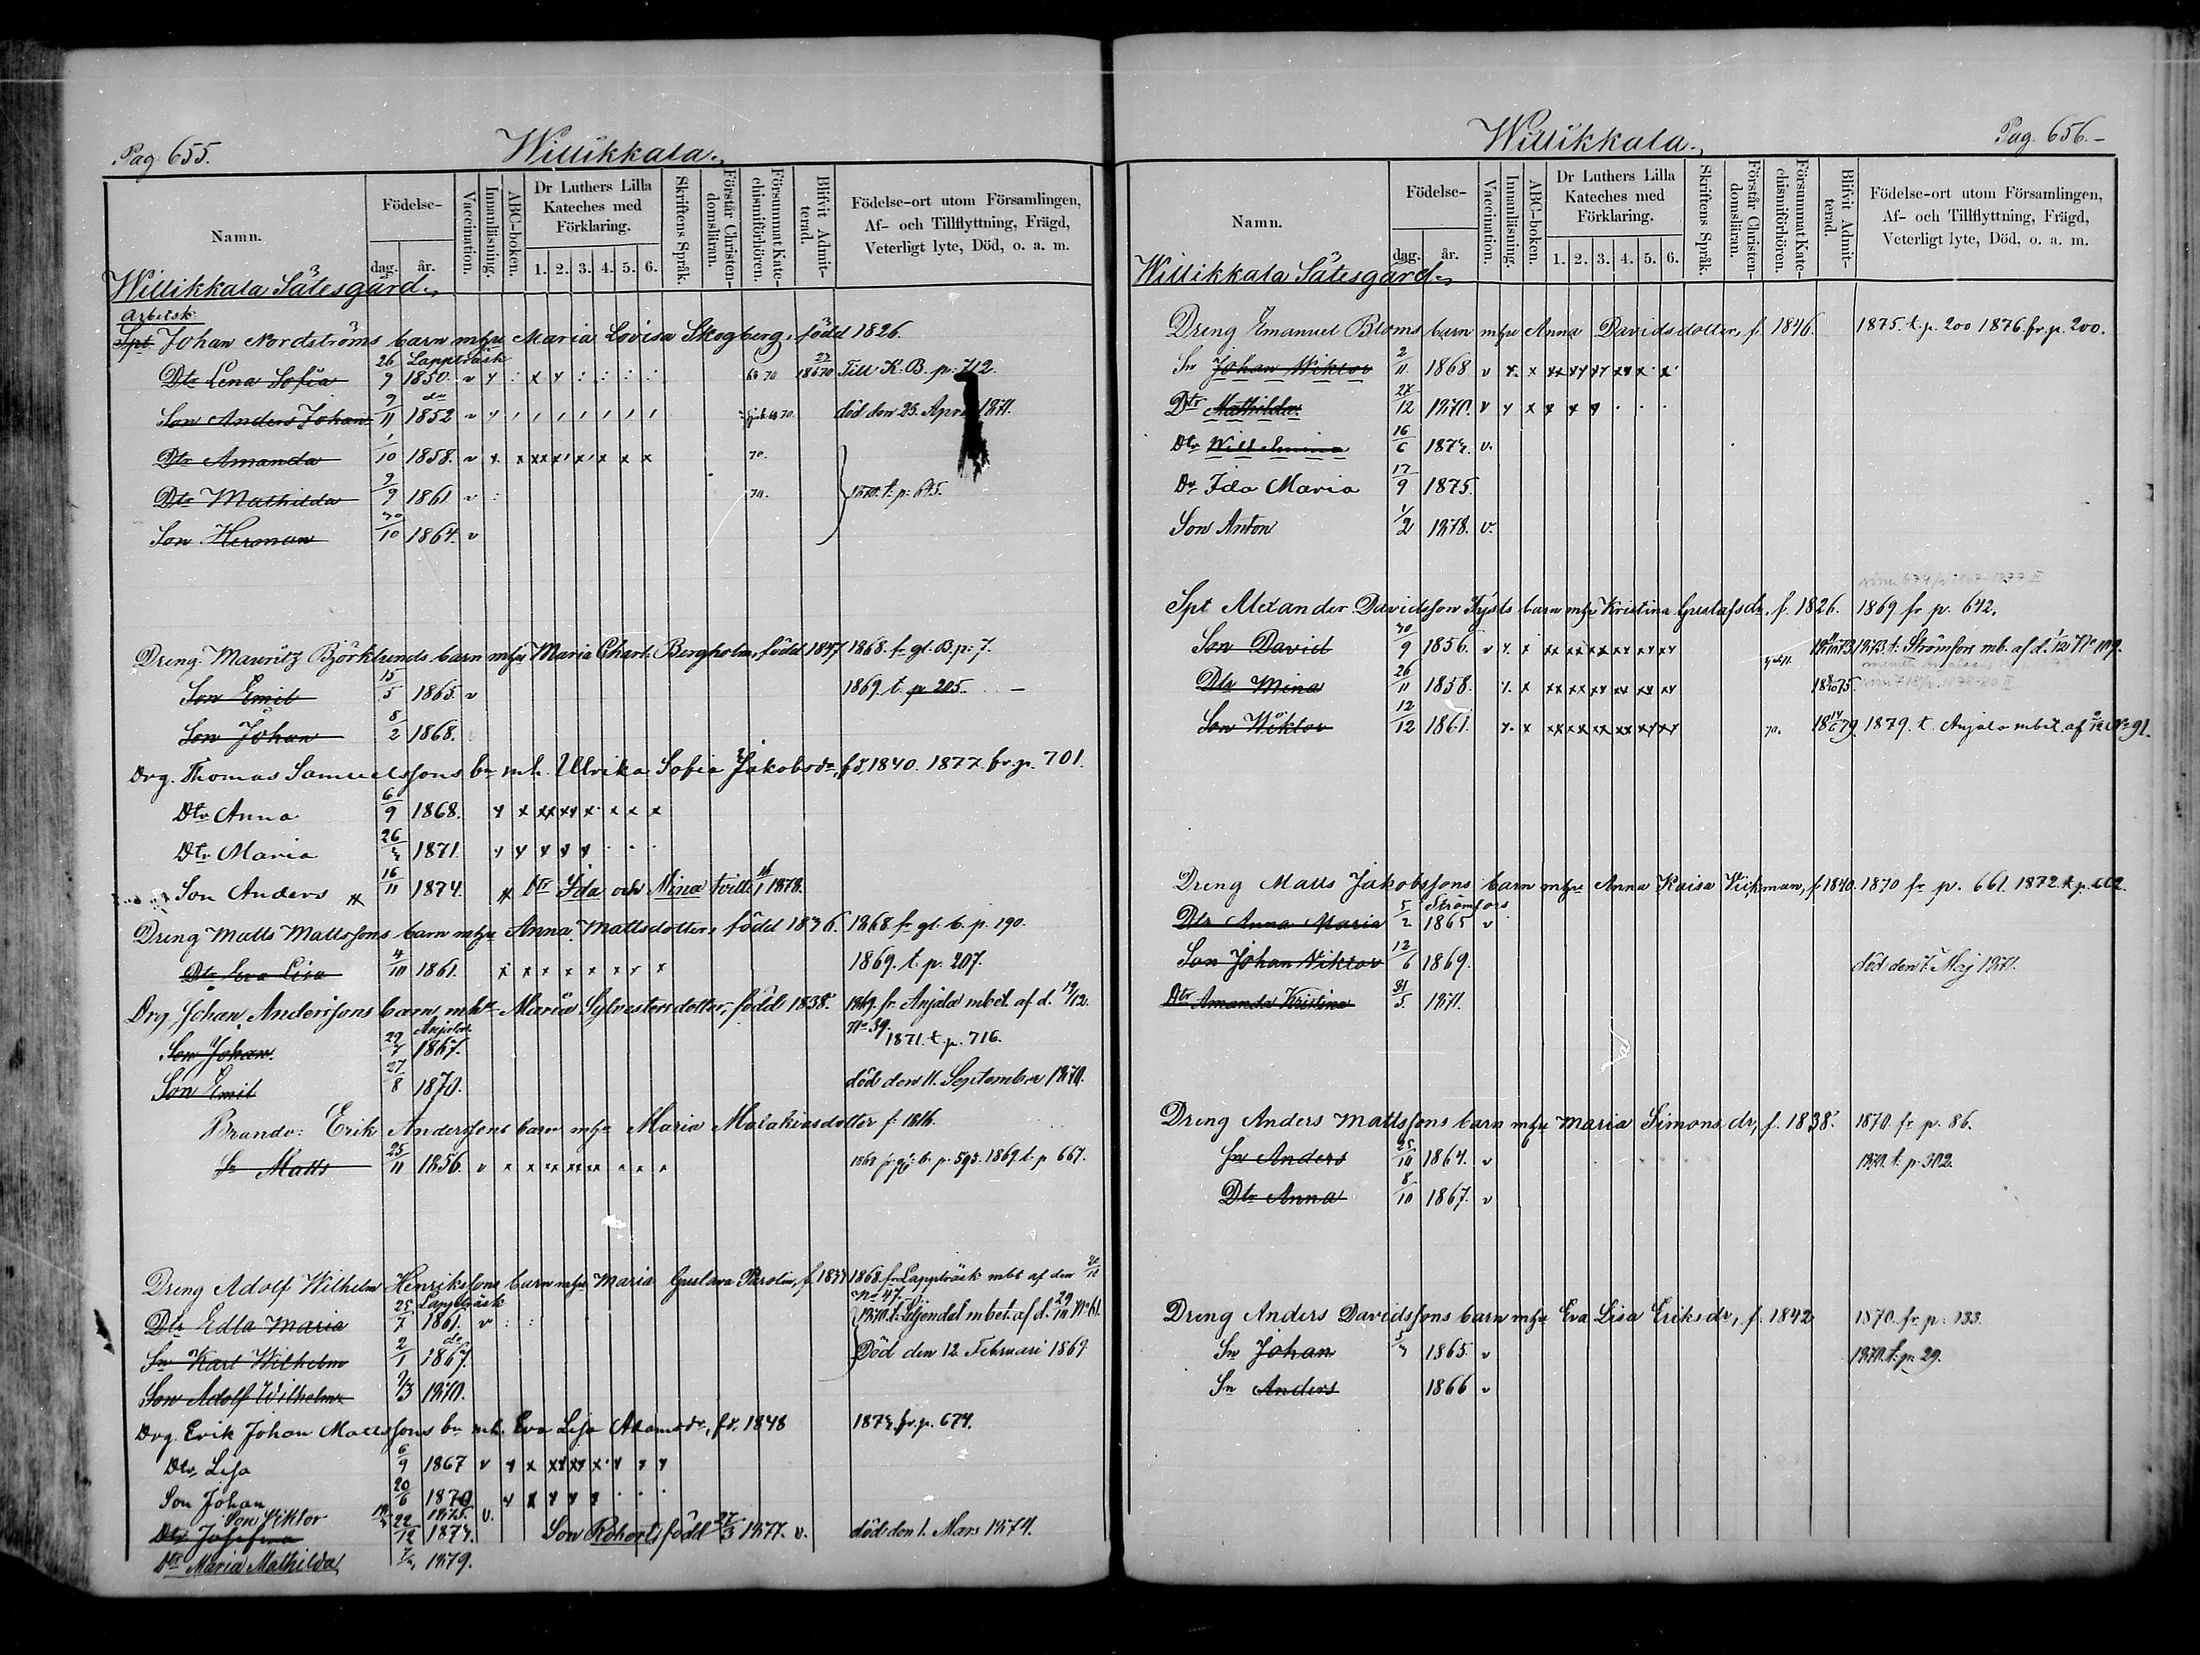 Pag. 655.
Willikkala.
Namn.
Födelse-
dag.
år.
Vaccination.
Innanläsning.
ABC-boken.
Dr Luthers Lilla
Kateches med
Förklaring.
1. 2. 3. 4. 5. 6.
Skriftens Språk.
Förstår Christen-
domsläran.
Försummat Kate-
chismiförhören.
Blifvit Admit-
terad.
Födelse-ort utom Församlingen,
Af- och Tillflyttning, Frägd,
Veterligt lyte, Död, o. a. m.
Willikkala Sätesgård.
Arbetsk:
Spt Johan Nordströms barn m hu Maria Lovisa Skogberg, född 1826.
Lappträsk
Dtr Lena Sofia 26/9 1850. v Till K. B. p. 712.
do
Son Anders Johan 9/11 1852 v död den 23. April 1871.
Dtr Amanda 1/10 1858. v 70.
Dtr Mathilda 9/9 1861 v 70. 1870. t. p. 645.
Son Herman 30/10 1864. v
Dreng Mauritz Björklunds barn m hu Maria Charl. Bergholm, född 1847 1868. fr gl. B. p. 7.
Son Emil 15/5 1865. v 1869. t. p. 205.
Son Johan 8/2 1868.
Drg. Thomas Samuelssons bn m h. Ulrika Sofia Jakobsdr, fd. 1840. 1877. fr. p. 701.
Dtr Anna 6/9 1868.
Dtr Maria 26/ 1871.
Son Anders 16/11 1874. Dtr Ida och Mina tvill. 1878.
Dreng Matts Mattssons barn m hu Anna Mattsdotter, född 1836. 1868 fr gl. b. p. 190.
Dtr Eva Lisa 4/10 1861. 1869. t. p. 207.
Drg. Johan Anderssons barn, m hu Maria Sylvestersdotter, född 1838. 1869. fr. Anjala mbet. af d. 19/12.
No 39.
Anjala
Son Johan. 1867. 1871. t. p. 716.
Son Emil 27/8 1870. död den 11. September 1870.
Brandv: Erik Anderssons barn m hu Maria Malakiasdotter f. 1816.
Sn Matts 25/11 1856. v 1868 fr gl. b. p. 593. 1869. t. p. 667.
Dreng Adolf Wilhelm Henrikssons barn m hu Maria Gustava Parolin, f. 1837 1868. fr. Lappträsk mbt af den
No 47.
Lappträsk
Dtr Edla Maria 25/7 1861. v 1870. t. Liljendal mbet. af d. 29/10 No 61.
do
Sn Karl Wilhelm 2/1 1867. Död den 12. Februari 1869
Son Adolf Wilhelm 1870.
Drg. Erik Johan Mattssons bn m h. Eva Lisa Adamsdr, fd. 1848 fr. p. 674.
Dtr Lisa 6/9 1867 v
Son Johan 20/6 1870
Son Viktor 1875. v.
Dtr Josefina 22/12 Son Robert, född 27/3 1877. v. död den 1. Mars 1874.
Dtr Maria Mathilda 1879.
Willikkala.
Pag. 656.
Namn.
Födelse-
dag.
år.
Vaccination.
Innanläsning.
ABC-boken.
Dr Luthers Lilla
Kateches med
Förklaring.
1. 2. 3. 4. 5. 6.
Skriftens Språk.
Förstår Christen-
domsläran.
Försummat Kate-
chismiförhören.
Blifvit Admit-
terad.
Födelse-ort utom Församlingen,
Af- och Tillflyttning, Frägd,
Veterligt lyte, Död, o. a. m.
Willikkala Sätesgård.
Dreng Emanuel Bloms barn m hu Anna Davidsdotter, f. 1846. 1875. t. p. 200 1876. fr. p. 200.
Sn Johan Wiktor 2/11 1868 v
Dtr Mathilda 27/12 1870. v
Dtr Wilhelmina 16/6 v.
Dr Ida Maria 17/9 1875.
Son Anton 1/2 1878. v.
Spt Alexander Davidsson Tysts barn m hu Kristina Gustafsdr, f. 1826. 1869 fr p. 642.
Son David 30/9 1856. v 1873. t. Strömfors mb. af d.
Dtr Mina 26/11 1858.
Son Wiktor 12/12 1861. 70. 1879. t. Anjala mbet. af No 91.
Dreng Matts Jakobssons barn m hu Anna Kaisa Vikman, f. 1840. 1870 fr p. 661. 1872. t. p.
Strömfors
Dtr Anna Maria 5/2 1865 v
Son Johan Viktor 12/6 1869. död den 7. Maj 1870.
Dtr Amanda Kristina 31/5 1871.
Dreng Anders Mattssons barn m hu Maria Simonsdr, f. 1838. 1870. fr p. 86.
Sn Anders 25/10 1864. v 1870. t. p. 302.
Dtr Anna 8/10 1867. v
Dreng Anders Davidssons barn m hu Eva Lisa Eriksdr, f. 1842 1870. fr p. 133.
Sn Johan 1865 v 1870. t. p. 29.
Sn Anders 1866 v